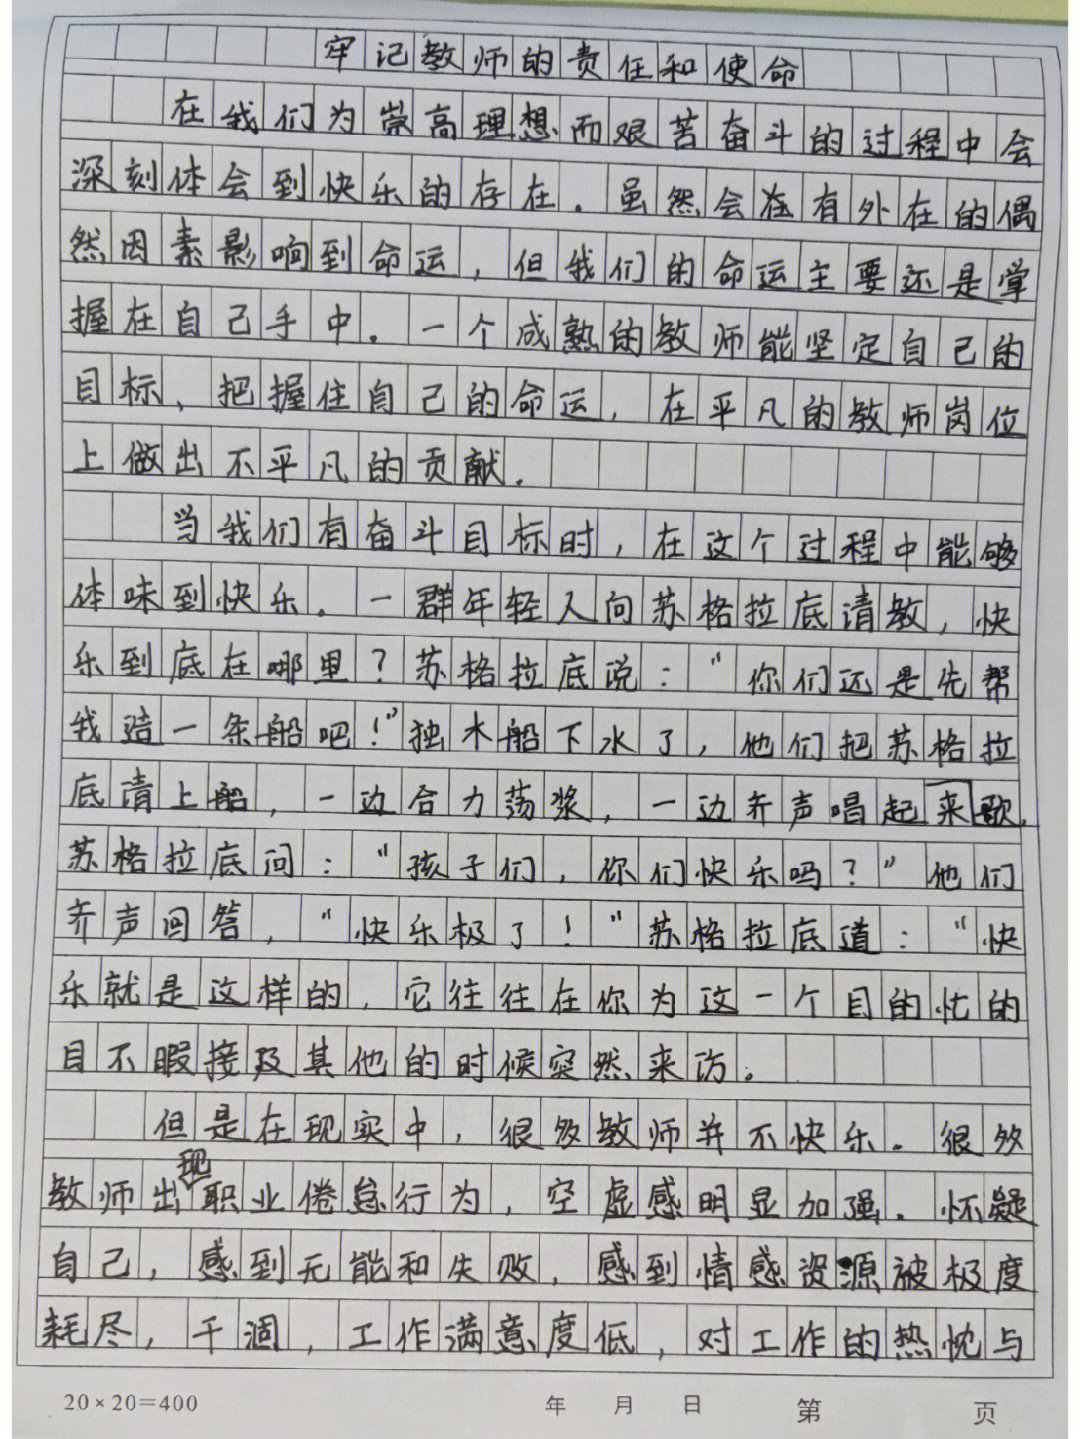 牢记教师的责任和使命
在我们为崇高理想而艰苦奋斗的过程中会
深刻体会到快乐的存在。虽然会在有外在的偶
然因素影响到命运，但我们的命运主要还是掌
握在自己手中。一个成熟的教师能坚定自己的
目标、把握住自己的命运，在平凡的教师岗位
上做出不平凡的贡献。
当我们有奋斗目标时，在这个过程中能够
体味到快乐。一群年轻人问苏格拉底请教，快
乐到底在哪里？苏格拉底说：“你们还是先帮
我造一条船吧！”独木船下水了，他们把苏格拉
底请上船，一边合力荡浆，一边齐声唱起来歌，
苏格拉底问：“孩子们，你们快乐吗？”他们
齐声回答，“快乐极了！”苏格拉底道：“快
乐就是这样的，它往往在你为这一个目的忙的
目不暇接及其他的时候突然来访。
但是在现实中，很多教师并不快乐。很多
教师出现职业倦怠行为，空虚感明显加强。怀疑
自己，感到无能和失败，感到情感资源被极度
耗尽，干涸，工作满意度低，对工作的热忱与
20×20=400 年 月 日 第 页